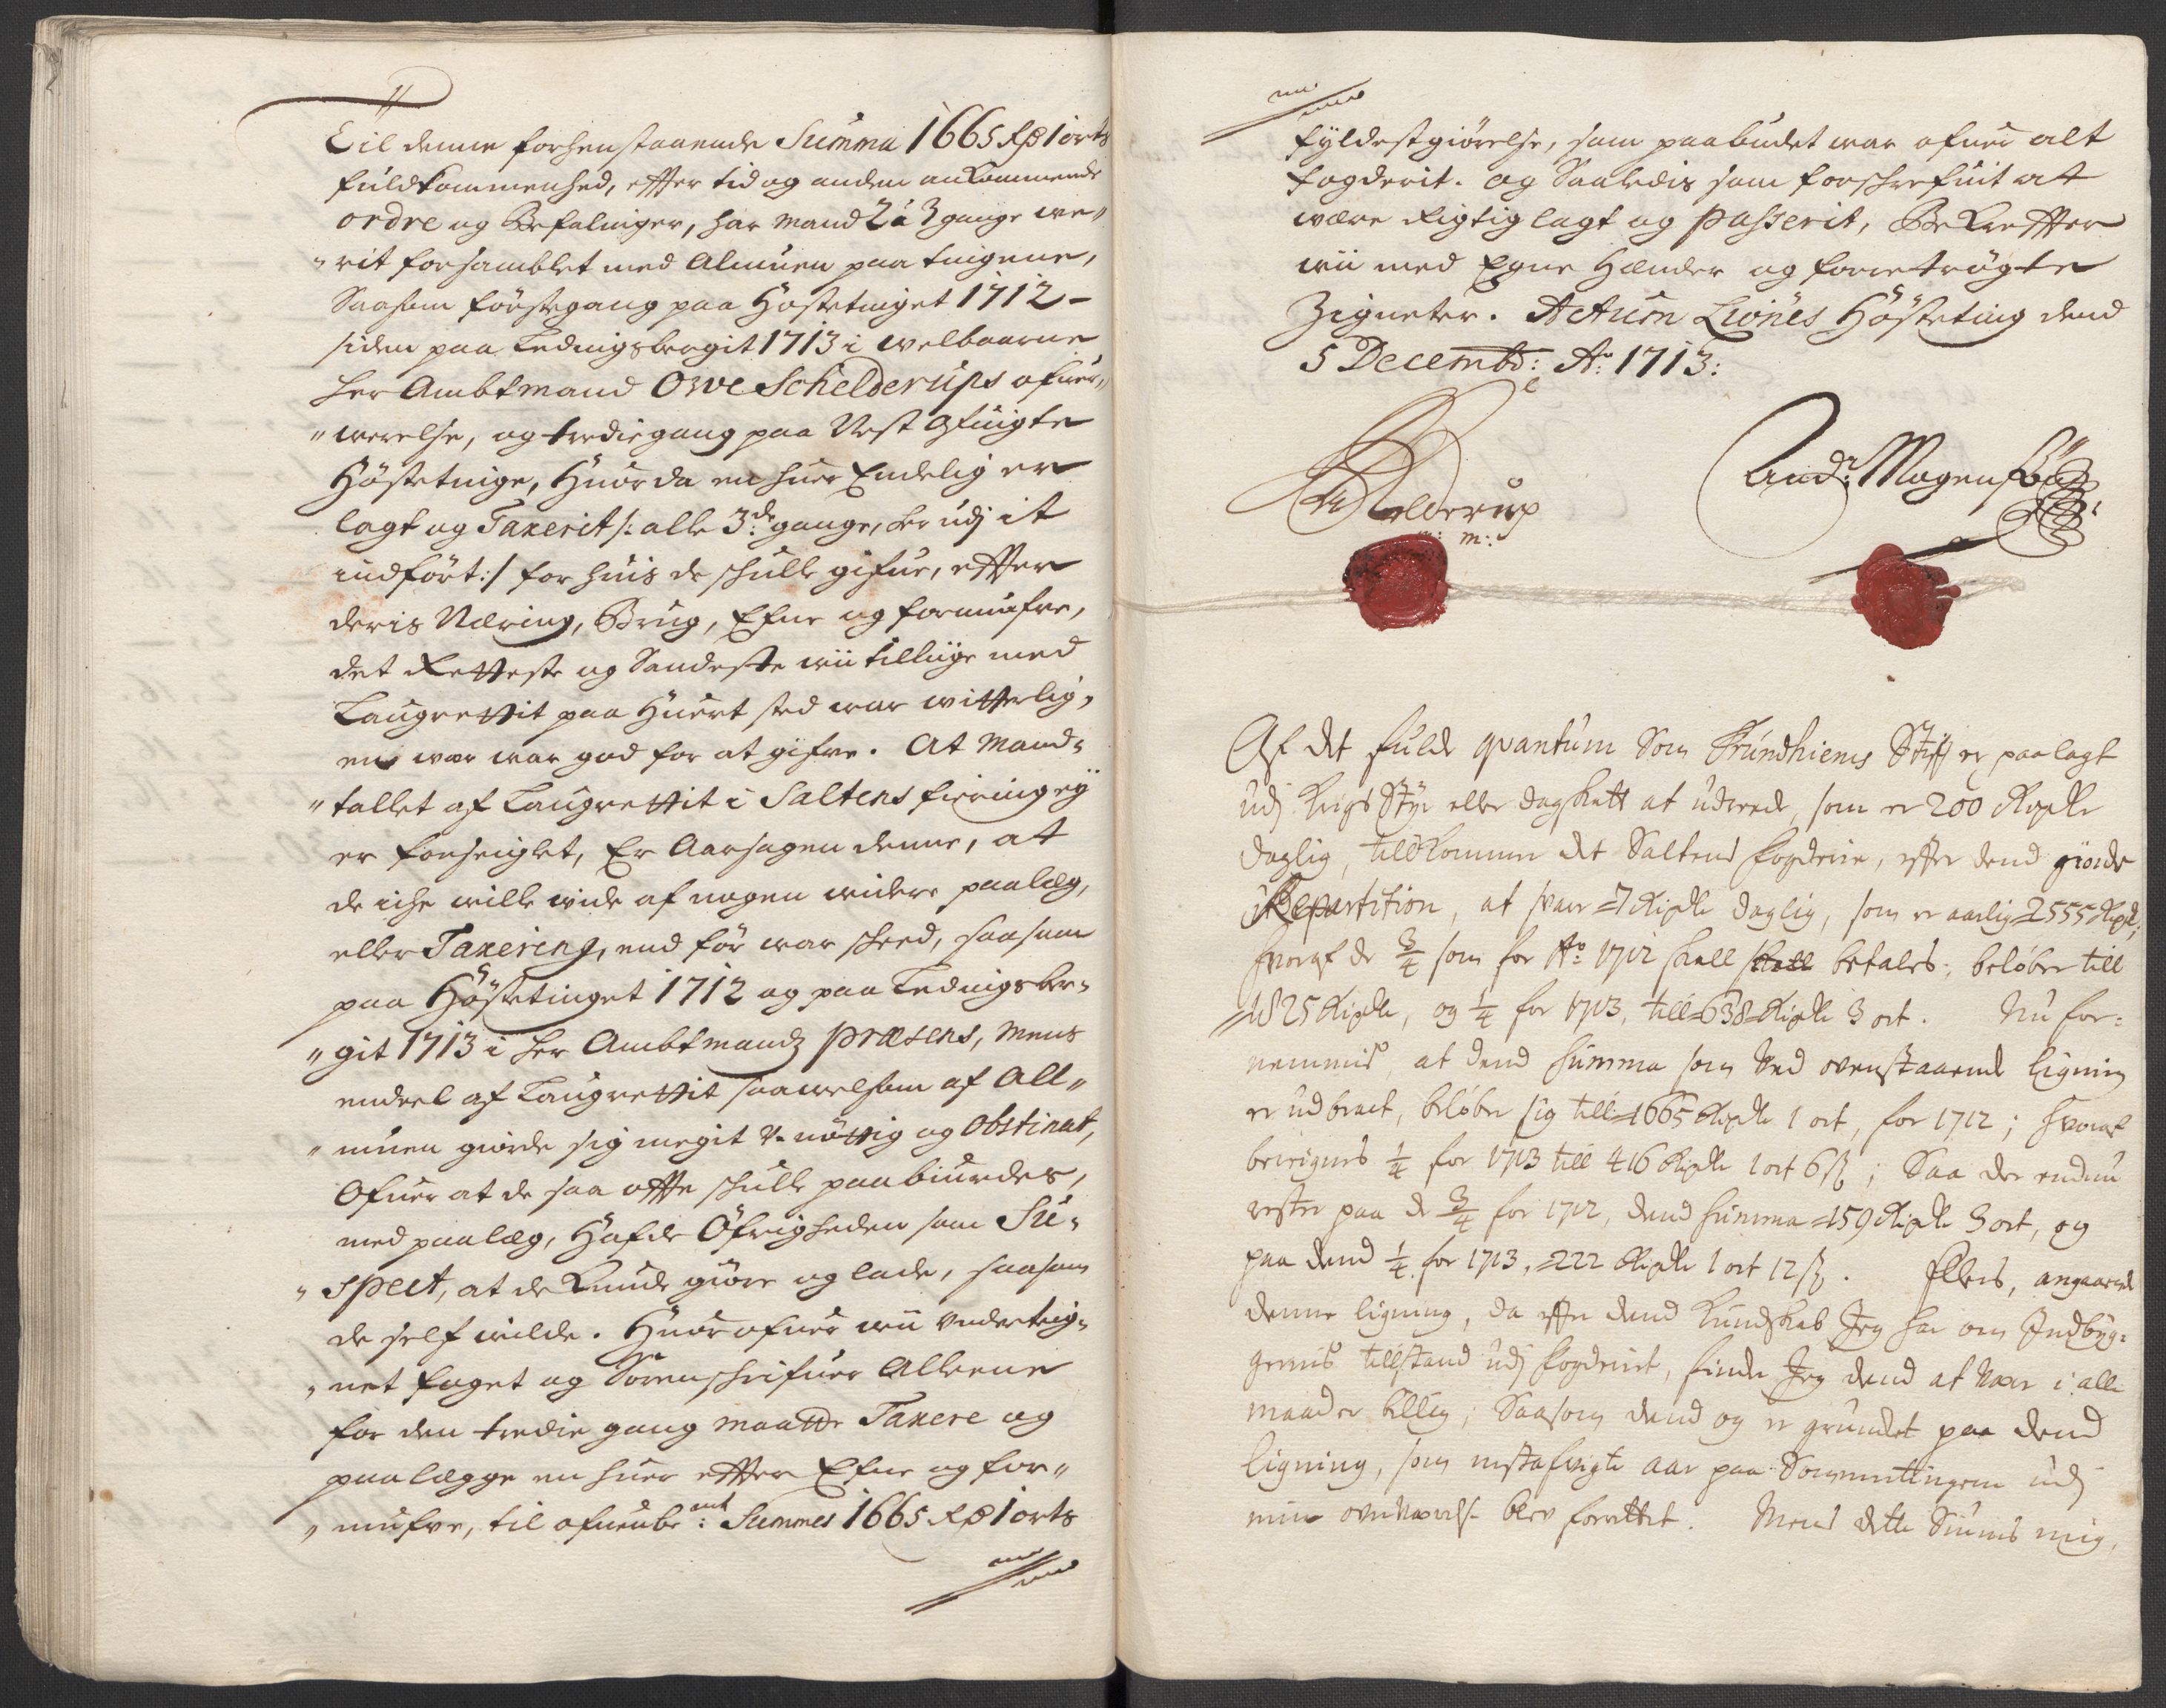 Til denne forhenstaaende Summa 1665 Rd 1 orts
fuldkommenhed, effter tid og anden ankommende
ordre og Befalinger, har mand 2 à 3 gange we„
„rit forsamblet med Almuen paa tingene,
Saasom förstegang paa Höstetinget 1712 –
siden paa Ledingsbergit 1713 i welbaarne
Her Ambtmand Ove Schelderups ofuer„
„werelse, og tredie gang paa Nest afuigte
Höstetinge, Huor da en huer Endelig er
lagt og Taxerit /: alle 3de gange, her udj it
indfört :/ for huis de schulle gifue, effter
deris Næring, Brug, Efne og formuefve,
det Retteste og Sandeste wii tilliige med
Laugrettit paa Huert sted war witterlig,
en war god for at gifve. At Mand„
„tallet af Laugrettit i Saltens fierring ey
er forseiglet, Er Aarsagen denne, at
de iche wille wide af nogen widere paalæg,
eller Taxering, end för war scheed, saasom
paa Höstetinget 1712 og paa Ledingsber„
„git 1713 i Her Ambtmandz præsens, mens
endeel af Laugrettit saawelsom af All„
„muen giorde sig megit V-nöttig og Obstinat,
Ofuer at de saa offte schulle paabiurdes,
med paalæg, Hafde Öfrigheden som Su„
„spect, at de Kunde giöre og lade, saasom
de self wilde. Huorofuer wii Underteig„
„net foget og Sorenschrifuer Alleene
for den tredie gang maatte Taxere og
paalægge en huer effter Efne og for„
„muefve, til ofuenbemt: Summes 1665 Rd 1 orts
fyldestgiörelse, som paabudet war ofuer alt
fogderit. og Saaledis som forschrefuit at
være Rigtig lagt og passerit, Bekreffter
wii med Egne Hænder og foretrögte
Zigneter. Actum Liönes Hösteting dend
5 Decembr: Ao: 1713:
Schelderup
m:
And: Mogensön
Af det fulde qvantum Som Trundhiems Stift er paalagt
udj Krigs Styr eller dagskatt at udrede, som er 200 Rixdlr
daglig, tilkommer det Saltens fogderie, effter dend giorde
Repartition, at svare 7 Rixdlr daglig, som er aarlig 2555 Rixdr,
hvoraf de 3/4 som for Ao: 1712 skall skall betales, beløber till
1825 Rixdlr, og 1/4 for 1713, till 638 Rixdlr 3 ort. Nu for=
nemmis, at dend Summa som ved ovenstaaende Ligning
er udbract, beløber sig till 1665 Rixdlr 1 ort, for 1712; hvoraf
beregnes 1/4 for 1713 till 416 Rixdlr 1 ort 6 ß; Saa der endnu
rester paa de 3/4 for 1712, dend Summa 159 Rixdlr 3 ort, og
paa dend 1/4 for 1713, 222 Rixdlr 1 ort 12 ß. Ellers, angaaende
denne ligning, da effter dend Kundskab Jeg har om Indbyg=
gernis tillstand udj fogderiet, finder Jeg dend at være i alle
maader billig; Saasom dend og er grundet paa dend
ligning, som nestafvigte aar paa Sommertingene udj
min overværelse blev forrettet. Mens dette Siunes mig,